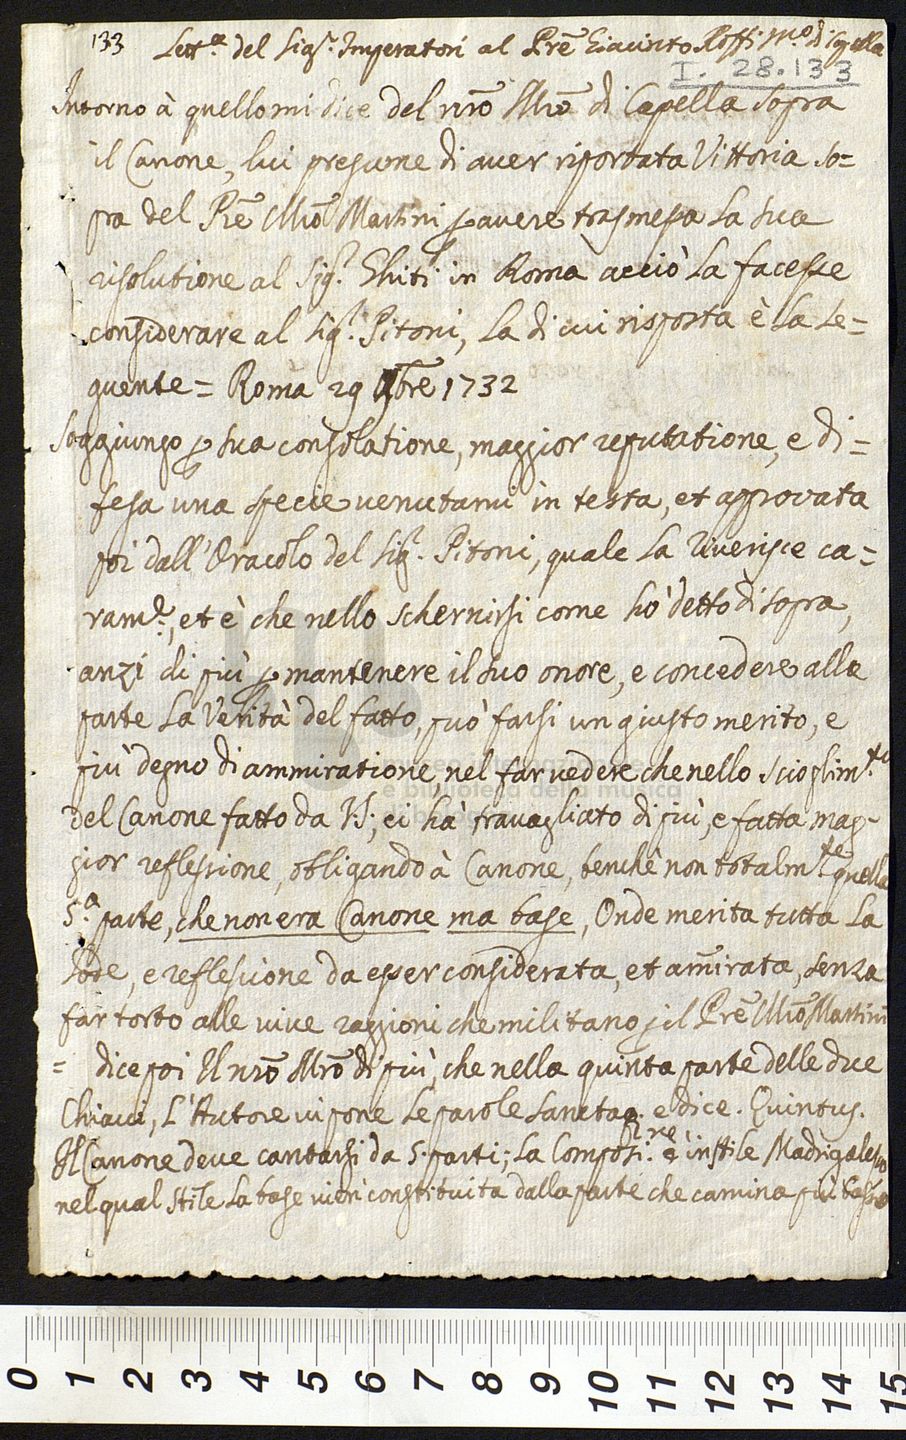 133 Lett.ᵃ del Sig.ʳ Imperatori al Prē Giacinto Roffi M.º di Cappella
I. 28.133
Intorno à quello mi dice del nrō Mrō di Capella sopra
il Canone, lui presume di aver riportata Vittoria so=
pra del Prē Mrō Martini p avere trasmessa La sua
risolutione al Sig.ʳ Ghiti in Roma acciò La facesse
considerare al Sig.ʳ Pitoni, La di cui risposta è La Se=
guente = Roma 29 9bre 1732
Soggiungo p sua consolatione, maggior reputatione, e di=
fesa una specie venutami in testa, et approvata
poi dall'Oracolo del Sig.ʳ Pitoni, quale La riverisce ca=
ram.ᵉ, et è che nello schernirsi come hò detto di sopra,
anzi di più p mantenere il suo onore, e concedere alla
parte La Verità del fatto, può farsi un giusto merito, e
più degno di ammiratione, nel far vedere che nello Scioglim.ᵗᵒ
del Canone fatto da V.S., ci hà travagliato di più, e fatta mag=
gior reflessione, obligando à Canone, benchè non totalm.ᵗᵉ quella
5.ᵃ parte, che non era Canone ma base, Onde merita tutta La
Lode, e reflessione da esser considerata, et am̄irata, senza
far torto alle vive raggioni che militano p il Prē Mrō Martini
= dice poi Il nrō Mrō di più, che nella quinta parte delle due
Chiavi, L'Autore vi pone Le parole Sancta &. e dice. Quintus.
Il Canone deve cantarsi da 5. parti; La Composi.ⁿᵉ è in stile Madrigalesco
nel qual Stile La base vien constituita dalla parte che camina più bassa
museo internazionale
e biblioteca della musica
di bologna
0 1 2 3 4 5 6 7 8 9 10 11 12 13 14 15